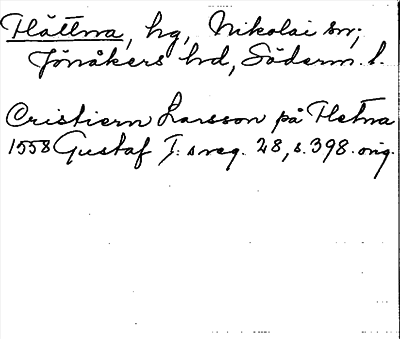 Flättna, hg, Nikolai sn;
Jönåkers hd, Söderm. l.
Cristiern Larsson på Fletna
1558 Gustaf I: s reg. 28, s. 398. orig.